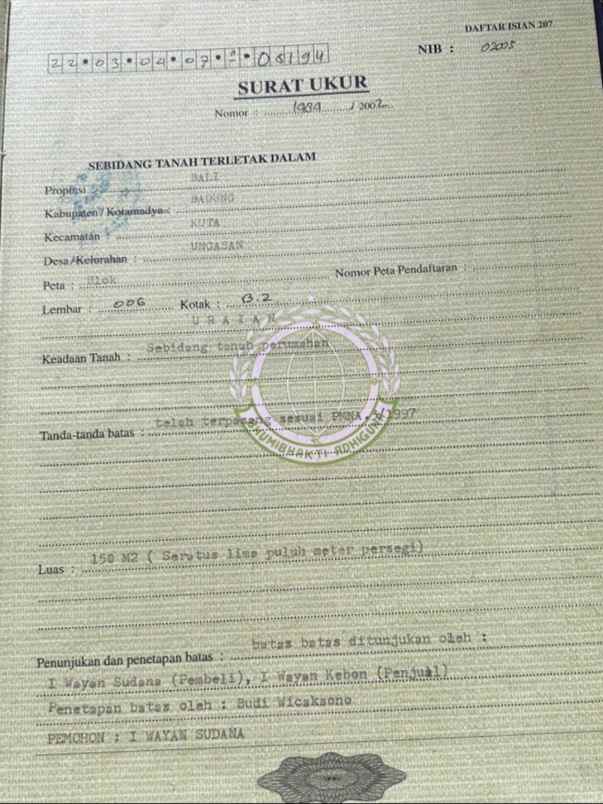 DAFTAR ISIAN 207
NIB : 02005
22.03.04.07.
SURAT UKUR
Nomor : 1939 / 2002
SEBIDANG TANAH TERLETAK DALAM
Propinsi : BALI
Kabupaten / Kotamadya : BADUNG
Kecamatan : KUTA
Desa / Kelurahan : UNGASAN
Peta : Blok Nomor Peta Pendaftaran :
Lembar : 006 Kotak : B.2
U R A I A N
Keadaan Tanah : Sebidang tanah perumahan
Tanda-tanda batas : telah terpasang sesuai PMNA 3/1997
BHUMIBHAKTI ADHIGUNA
Luas : 150 M2 ( Seratus lima puluh meter persegi)
batas batas ditunjukan oleh :
Penunjukan dan penetapan batas :
I Wayan Sudana (Pembeli), I Wayan Kebon (Penjual)
Penetapan batas oleh : Budi Wicaksono
PEMOHON : I WAYAN SUDANA